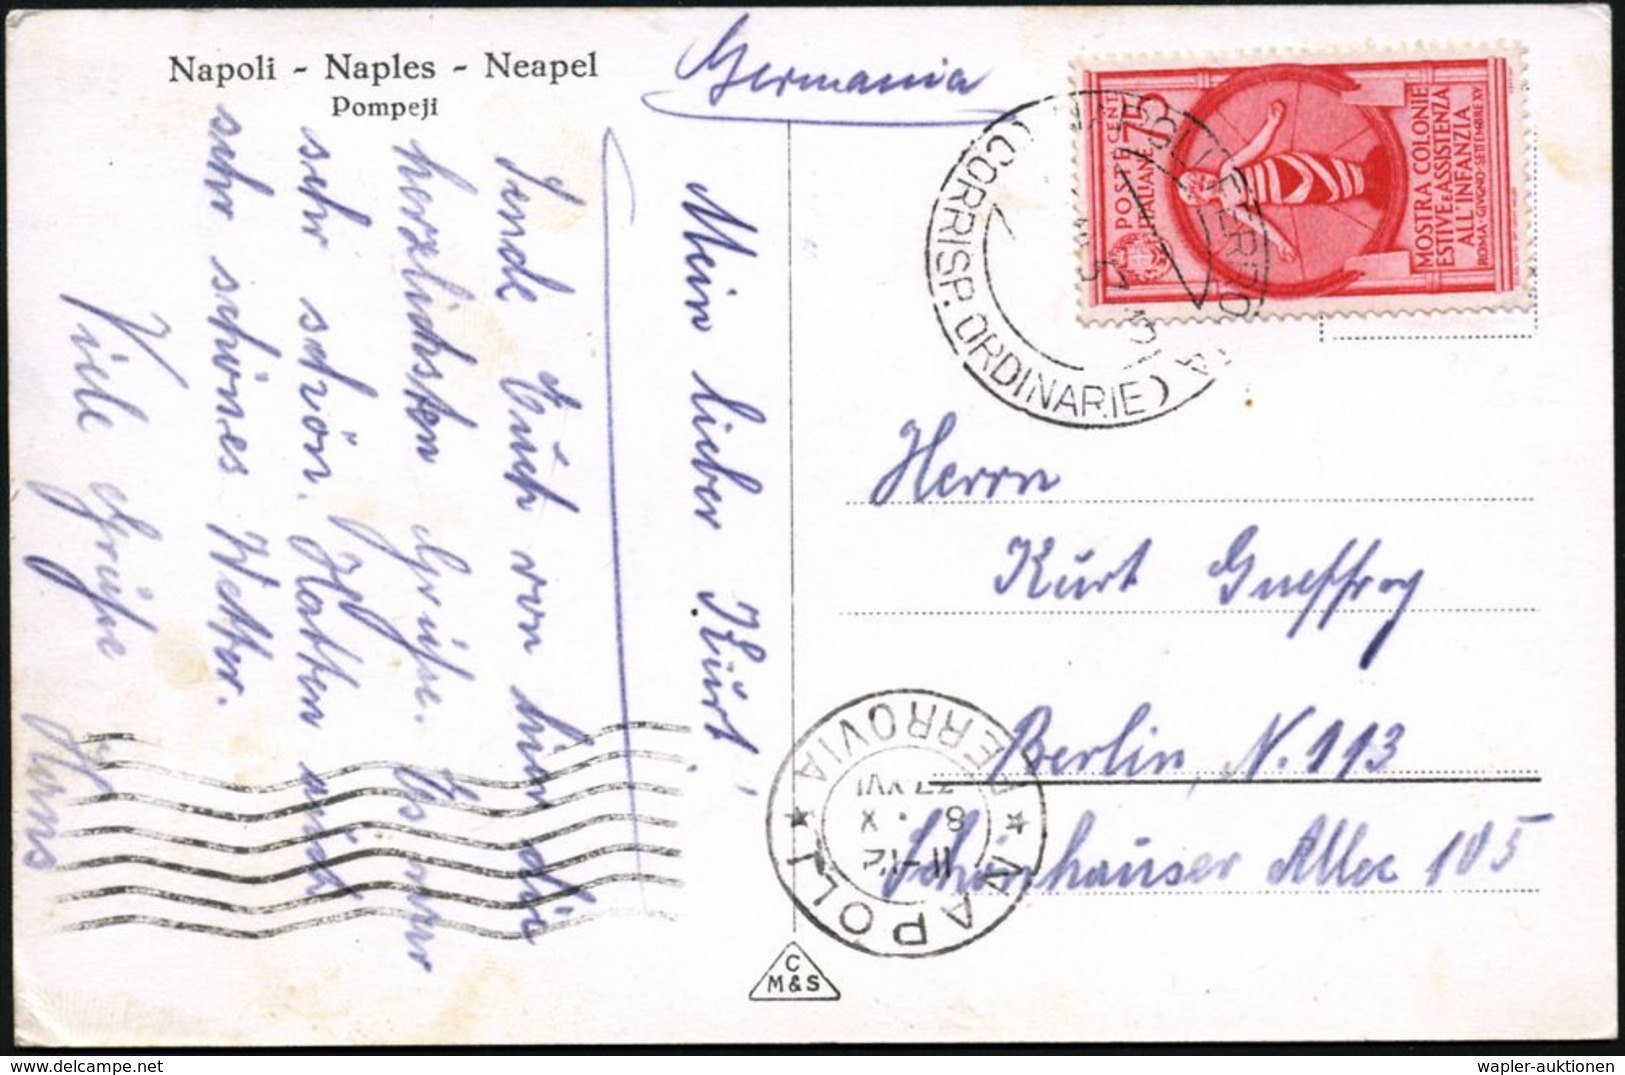 Napoli - Naples - Neapel
Pompeji
Germania
Mein lieber Kurt!
Sende Euch von hier die
herzlichsten Grüße. Es war
sehr schön. Hatten
sehr schönes Wetter.
Viele Grüße
Hans
POSTE CENT 75
ITALIANE
MOSTRA COLONIE
ESTIVE E ASSISTENZA
ALL'INFANZIA
ROMA·GIVGNO-SETTEMBRE XV
NAPOLI FERROVIA
(CORRISP. ORDINARIE)
Herrn
Kurt Gueffroy
Berlin, N. 113
Schönhauser Allee 105
NAPOLI
FERROVIA
11-12
8 · X
37 XVI
C
M&S
wapler-auktionen